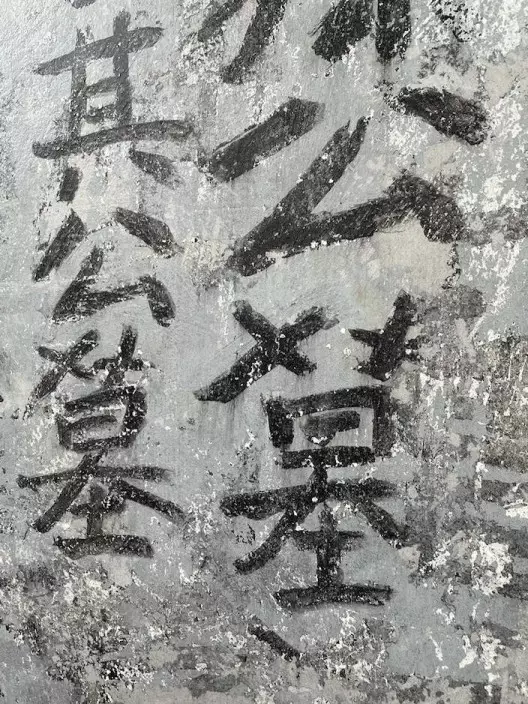 公墓
其公墓